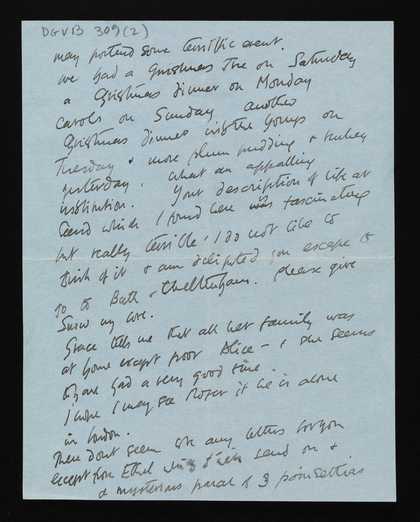 DGVB 309(2)
may portend some terrific event.
we had a Christmas Tree on Saturday
a Christmas dinner on Monday
Carols on Sunday another
Christmas dinner with the
Tuesday & more plum pudding & turkey
yesterday. what an appalling
institution. Your description of life at
which I found here was fascinating
but really terrible. I do not like to
think of it & am delighted you escape to
go to Bath & Cheltenham. Please give
my love.
Grace tells me that all her family was
at home except poor Alice - & she seems
to have had a very good time.
I hope I may see Roger if he is alone
in London.
There dont seem to be any letters for you
except from Ethel which I will send on &
a mysterious parcel of 3 poinsettias